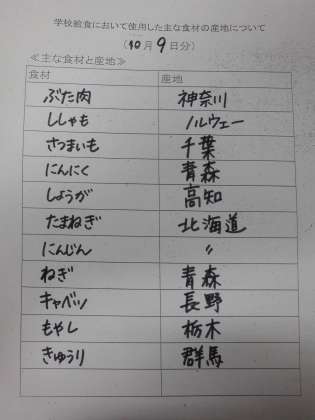 学校給食において使用した主な食材の産地について
(10月9日分)
≪主な食材と産地≫
食材 産地
ぶた肉 神奈川
ししゃも ノルウェー
さつまいも 千葉
にんにく 青森
しょうが 高知
たまねぎ 北海道
にんじん 〃
ねぎ 青森
キャベツ 長野
もやし 栃木
きゅうり 群馬